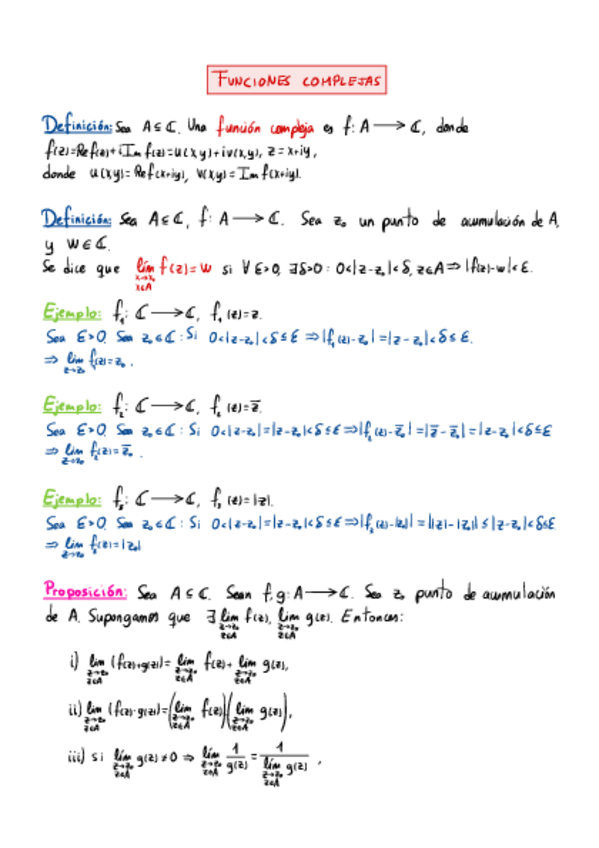 FUNCIONES COMPLEJAS
Definición: Sea A ⊆ ℂ. Una función compleja es f: A ⟶ ℂ, donde
f(z)=Re f(z)+i Im f(z)=u(x,y)+iv(x,y), z=x+iy,
donde u(x,y)=Re f(x+iy), v(x,y)=Im f(x+iy).
Definición: Sea A⊆ℂ, f: A ⟶ ℂ. Sea z₀ un punto de acumulación de A,
y w∈ℂ.
Se dice que lím f(z)=w si ∀ε>0, ∃δ>0: 0<|z-z₀|<δ, z∈A ⇒ |f(z)-w|<ε.
x→x₀
x∈A
Ejemplo: f₁: ℂ ⟶ ℂ, f₁(z)=z.
Sea ε>0. Sea z₀∈ℂ: Si 0<|z-z₀|<δ≤ε ⇒ |f₁(z)-z₀|=|z-z₀|<δ≤ε.
⇒ lím f₁(z)=z₀.
z→z₀
Ejemplo: f₂: ℂ ⟶ ℂ, f₂(z)=z̅.
Sea ε>0. Sea z₀∈ℂ: Si 0<|z-z₀|=|z-z₀|<δ≤ε ⇒ |f₂(z)-z̅₀|=|z̅-z̅₀|=|z-z₀|<δ≤ε
⇒ lím f₂(z)=z̅₀.
z→z₀
Ejemplo: f₃: ℂ ⟶ ℂ, f₃(z)=|z|.
Sea ε>0. Sea z₀∈ℂ: Si 0<|z-z₀|=|z-z₀|<δ≤ε ⇒ |f₃(z)-|z₀||=||z|-|z₀||≤|z-z₀|<δ≤ε.
⇒ lím f₃(z)=|z₀|
z→z₀
Proposición: Sea A⊆ℂ. Sean f,g: A ⟶ ℂ. Sea z₀ punto de acumulación
de A. Supongamos que ∃ lím f(z), lím g(z). Entonces:
z→z₀ z→z₀
z∈A z∈A
i) lím (f(z)+g(z)) = lím f(z) + lím g(z),
z→z₀ z→z₀ z→z₀
z∈A z∈A z∈A
ii) lím (f(z)·g(z)) = (lím f(z))(lím g(z)),
z→z₀ z→z₀ z→z₀
z∈A z∈A z∈A
iii) si lím g(z)≠0 ⇒ lím 1/g(z) = 1/lím g(z),
z→z₀ z→z₀ z→z₀
z∈A z∈A z∈A